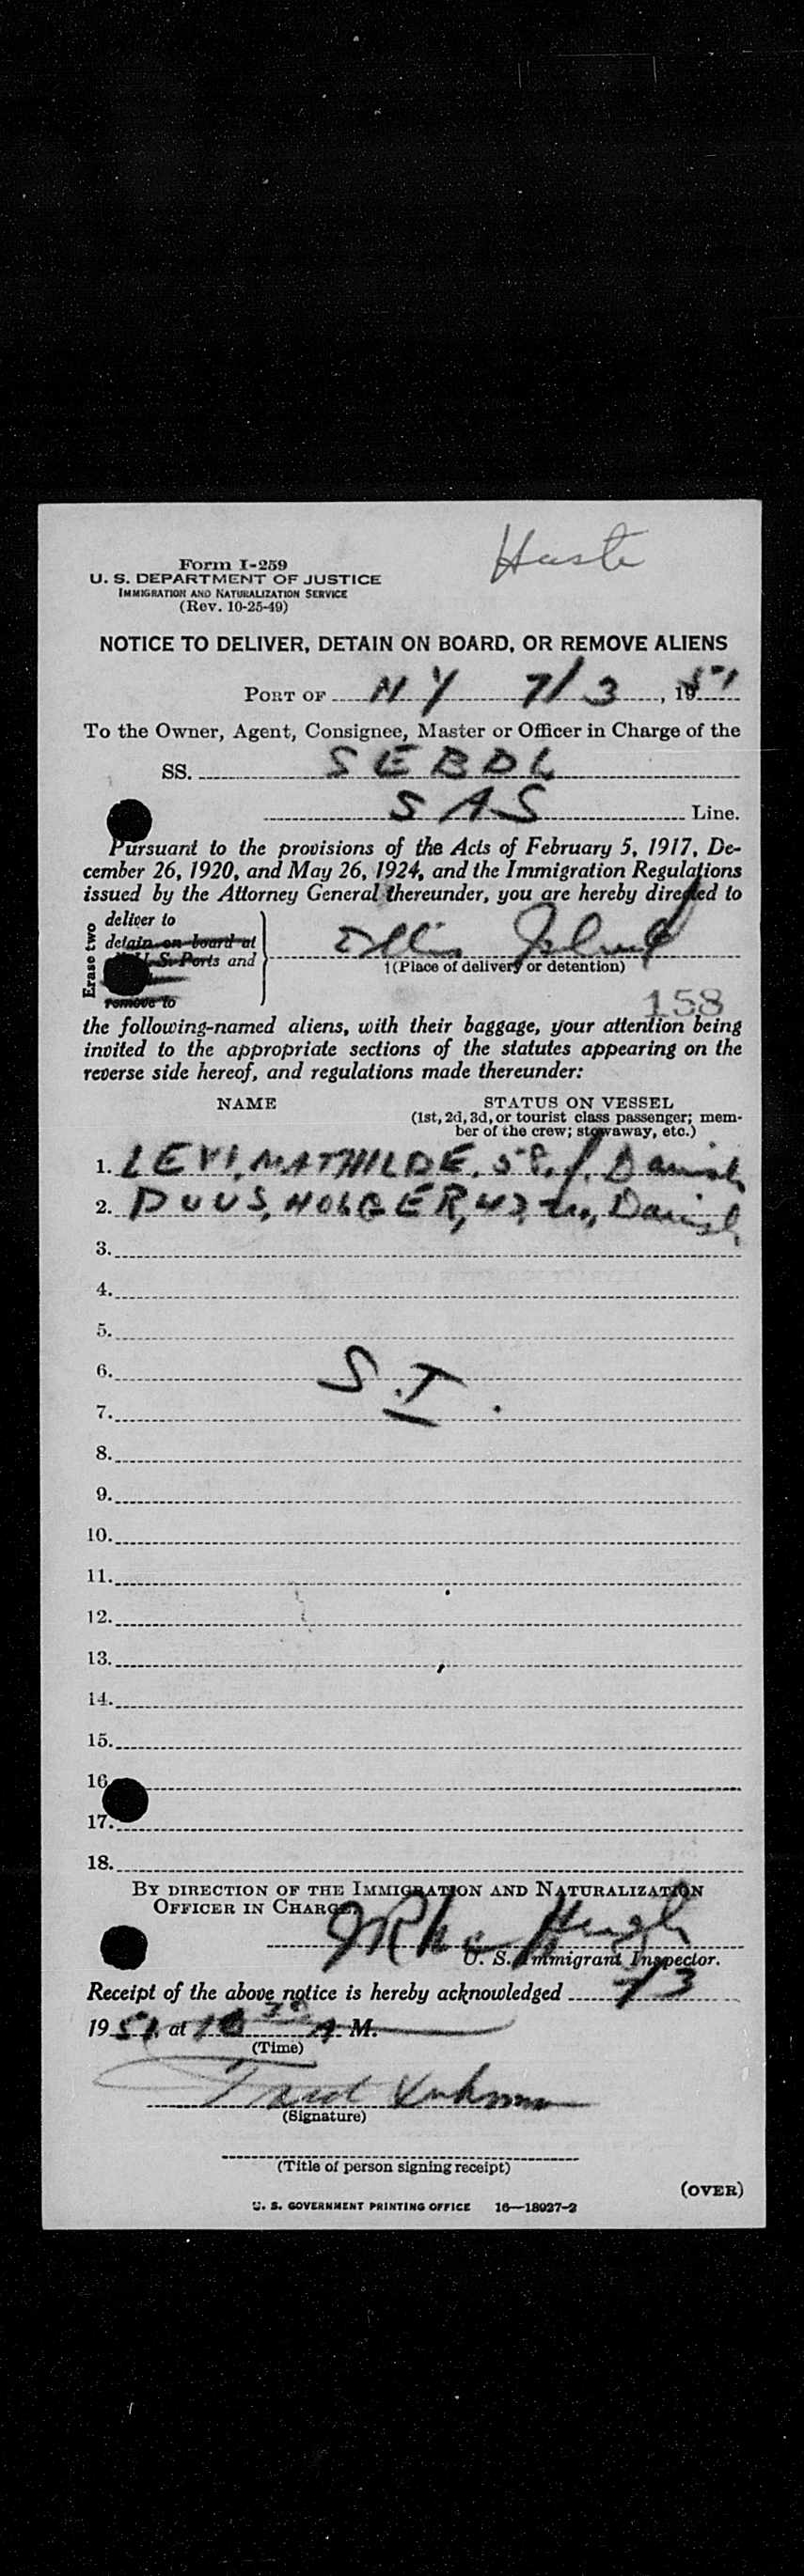 Haste
Form I-259
U. S. DEPARTMENT OF JUSTICE
IMMIGRATION AND NATURALIZATION SERVICE
(Rev. 10-25-49)
NOTICE TO DELIVER, DETAIN ON BOARD, OR REMOVE ALIENS
PORT OF NY 7/3, 1951
To the Owner, Agent, Consignee, Master or Officer in Charge of the
SS. SEBDL
SAS Line.
Pursuant to the provisions of the Acts of February 5, 1917, De-
cember 26, 1920, and May 26, 1924, and the Immigration Regulations
issued by the Attorney General thereunder, you are hereby directed to
Erase two
deliver to
detain on board at
U. S. Ports and
remove to
Ellis Island
†(Place of delivery or detention)
158
the following-named aliens, with their baggage, your attention being
invited to the appropriate sections of the statutes appearing on the
reverse side hereof, and regulations made thereunder:
NAME STATUS ON VESSEL
(1st, 2d, 3d, or tourist class passenger; mem-
ber of the crew; stowaway, etc.)
1. LEVI, MATHILDE, 58, f, Danish
2. DUUS, HOLGER, 47, m, Danish
3.
4.
5.
6. S.I.
7.
8.
9.
10.
11.
12.
13.
14.
15.
16.
17.
18.
BY DIRECTION OF THE IMMIGRATION AND NATURALIZATION
OFFICER IN CHARGE.
U. S. Immigrant Inspector.
Receipt of the above notice is hereby acknowledged 7/3
1951, at 10 30 A. M.
(Time)
(Signature)
(Title of person signing receipt)
(OVER)
U. S. GOVERNMENT PRINTING OFFICE 16—18027-2